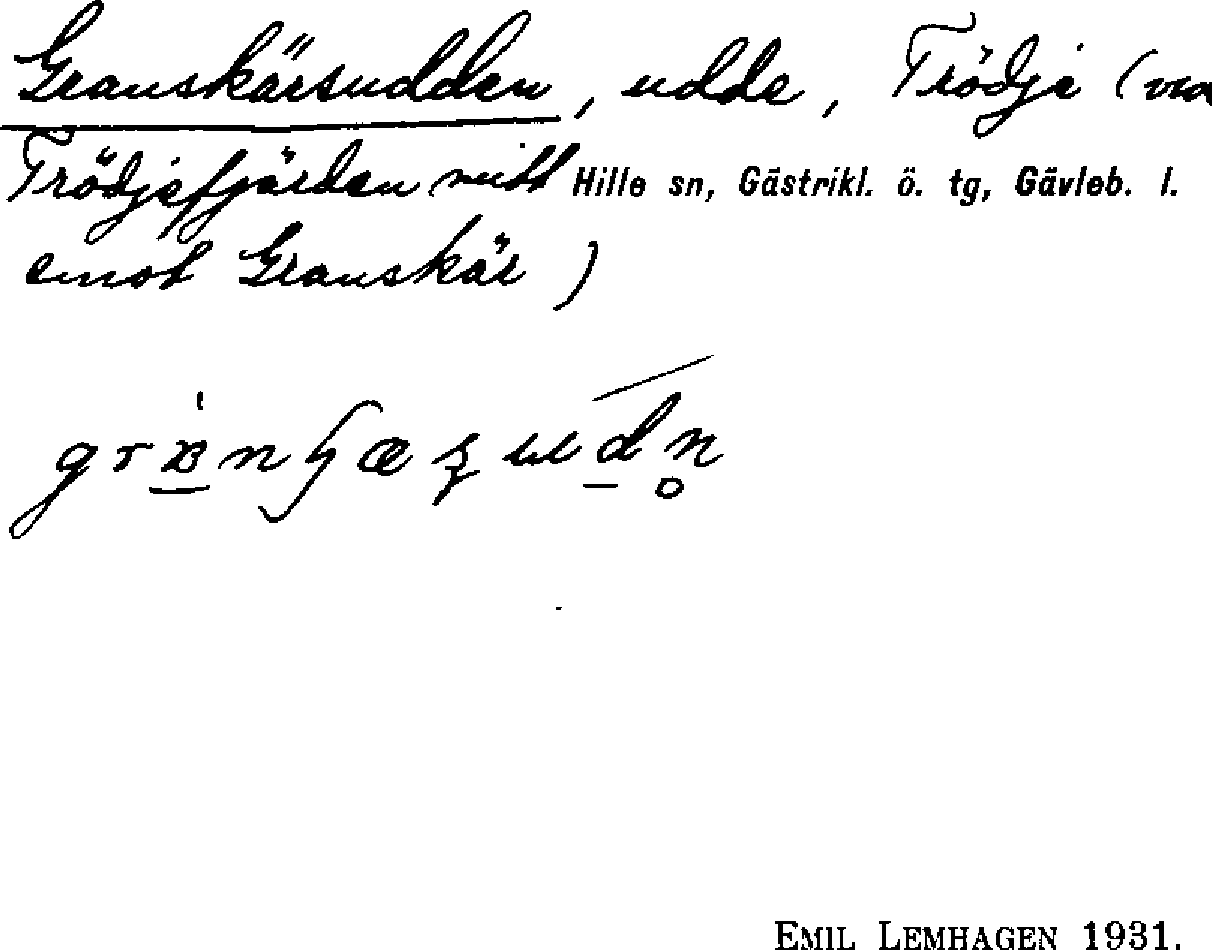 Granskärsudden, udde, Trödje (vid
Trödjefjärden mitt Hille sn, Gästrikl. ö. tg, Gävleb. l.
emot Granskär)
EMIL LEMHAGEN 1931.